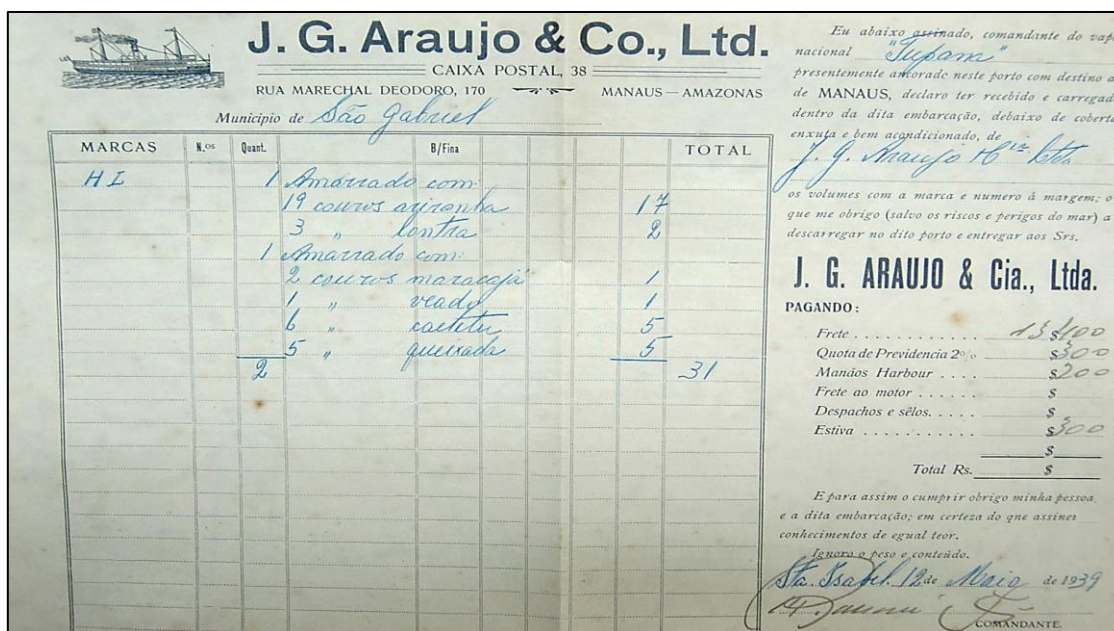 J. G. Araujo & Co., Ltd.
CAIXA POSTAL, 38
RUA MARECHAL DEODORO, 170 MANAUS — AMAZONAS
Municipio de São Gabriel
MARCAS N.os Quant. B/Fina TOTAL
HI 1 Amarrado com:
19 couros ariranha 17
3 " lontra 2
1 Amarrado com:
2 couros maracajá 1
1 " veado 1
6 " caetetu 5
5 " queixada 5
2 31
Eu abaixo assinado, comandante do vapo
nacional "Tupana"
presentemente ancorado neste porto com destino a
de MANAUS, declaro ter recebido e carregad
dentro da dita embarcação, debaixo de coberta
enxuta e bem acondicionado, de
J. G. Araujo & Cia Ltda
os volumes com a marca e numero á margem; o
que me obrigo (salvo os riscos e perigos do mar) a
descarregar no dito porto e entregar aos Srs.
J. G. ARAUJO & Cia., Ltda.
PAGANDO:
Frete . . . . . . . . . . . 13$400
Quota de Previdencia 2% $300
Manáos Harbour . . . . $200
Frete ao motor . . . . . . $
Despachos e sêlos. . . . . $
Estiva . . . . . . . . . . $300
$
Total Rs. $
E para assim o cumprir obrigo minha pessoa
e a dita embarcação; em certeza do qne assinei
conhecimentos de egual teor.
Ignoro o peso e conteúdo.
Sta. Isabel 12 de Maio de 1939
COMANDANTE.